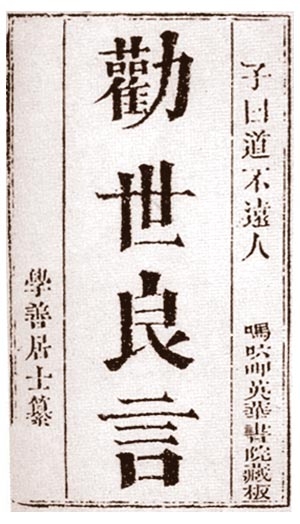 子曰道不遠人
嗎㕵呷英華書院藏板
勸世良言
學善居士纂